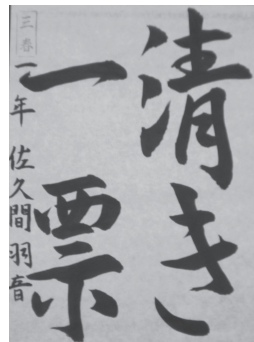 清き
一票
三春
一年 佐久間羽音